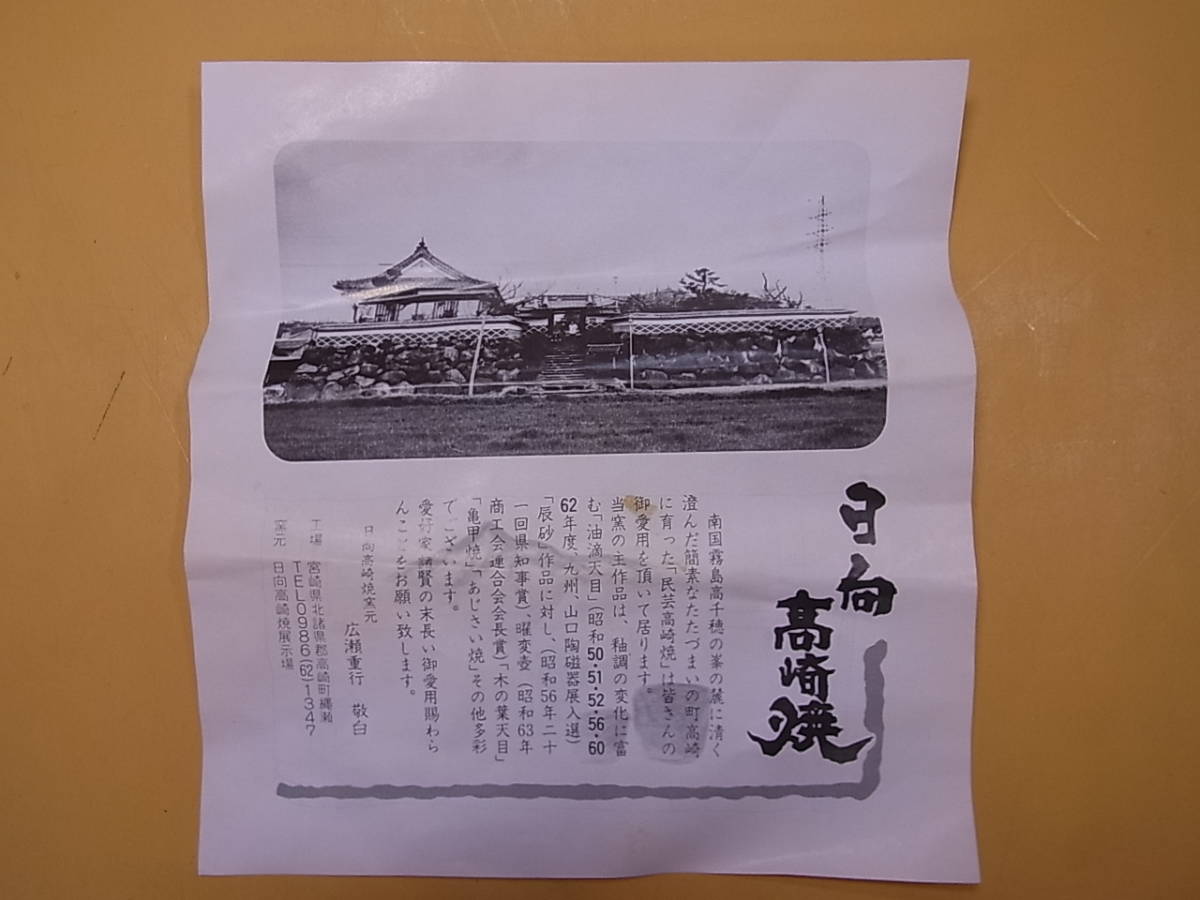 日向
高崎焼
南国霧島高千穂の峯の麓に清く
澄んだ簡素なたたづまいの町高崎
に育った「民芸高崎焼」は皆さんの
御愛用を頂いて居ります。
当窯の主作品は、釉調の変化に富
む「油滴天目」(昭和50・51・52・56・60
62年度、九州、山口陶磁器展入選)
「辰砂」作品に対し、(昭和56年二十
一回県知事賞)、曜変壺(昭和63年
商工会連合会会長賞)「木の葉天目」
「亀甲焼」「あじさい焼」その他多彩
でございます。
愛好家諸賢の末長い御愛用賜わら
んことをお願い致します。
日向高崎焼窯元
広瀬重行 敬白
工場 宮崎県北諸県郡高崎町縄瀬
TEL0986(62)1347
窯元 日向高崎焼展示場